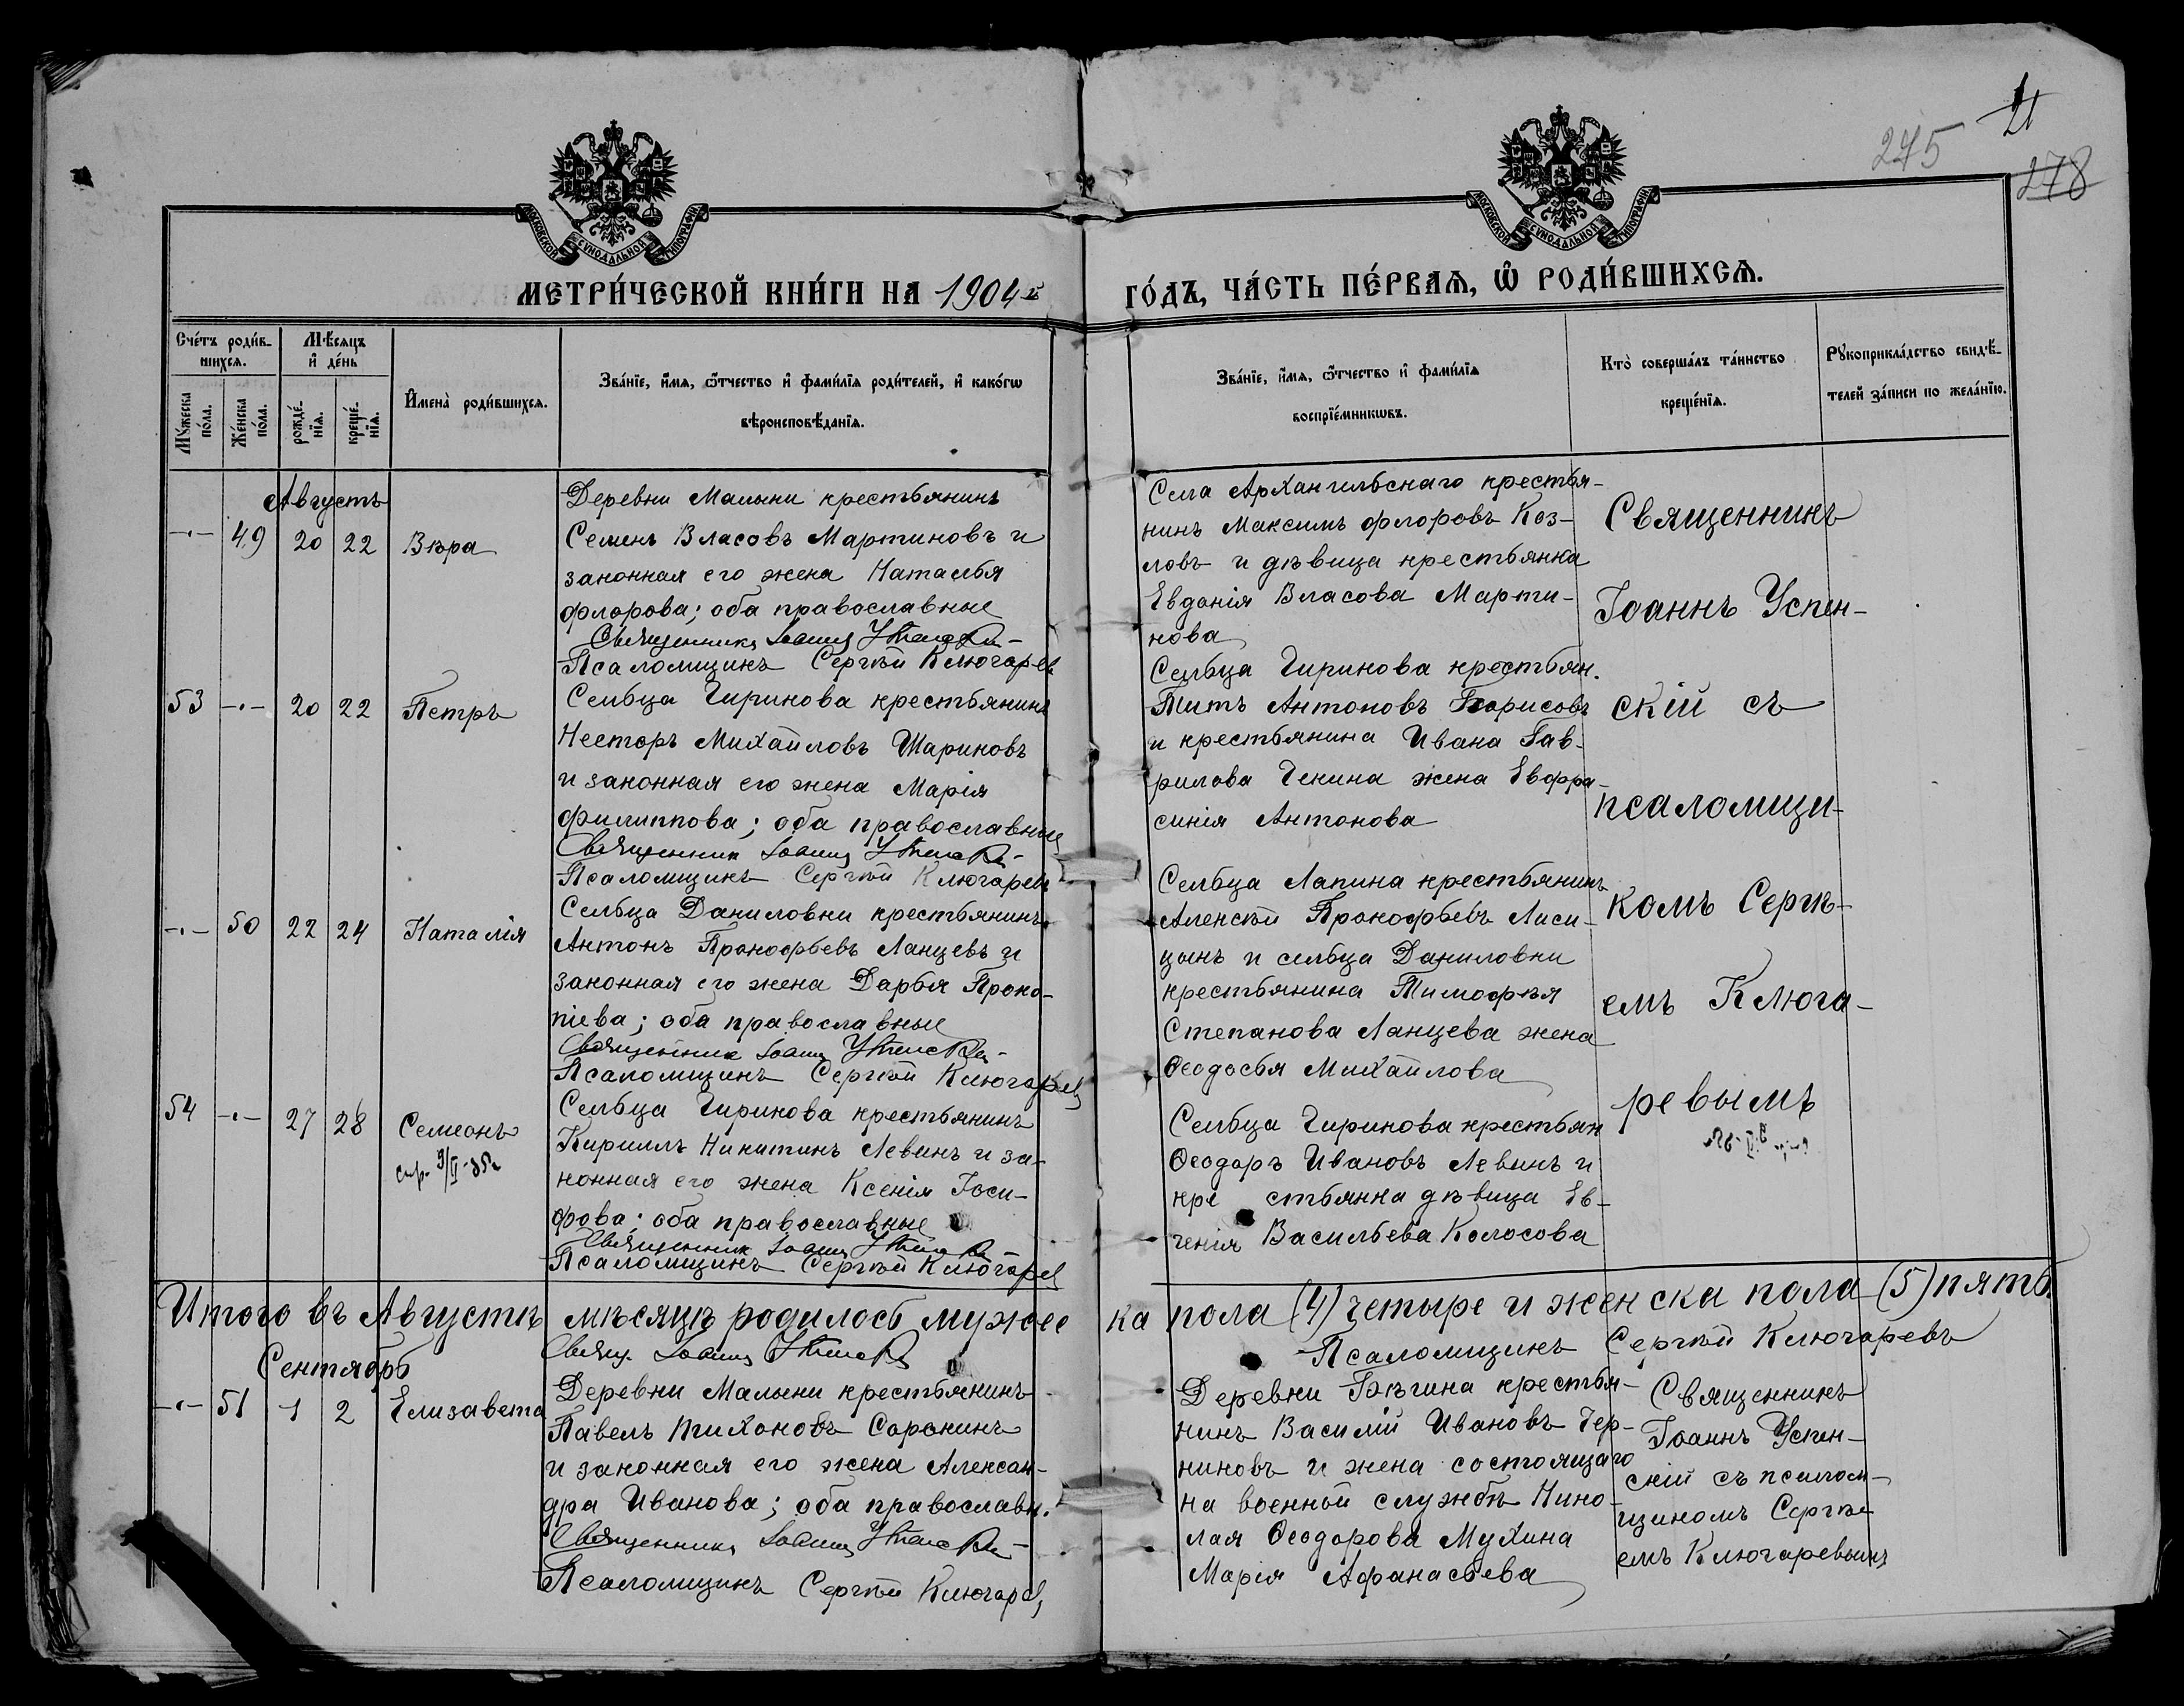 21
275
278
МОСКОВСКОЙ СѴНОДАЛЬНОЙ ТИПОГРАФІИ
МОСКОВСКОЙ СѴНОДАЛЬНОЙ ТИПОГРАФІИ
МЕТРИ́ЧЕСКОЙ КНИ́ГИ НА 1904 й
ГО́ДЪ, ЧА́СТЬ ПЕ́РВАѦ, Ѽ РОДИ́ВШИХСѦ.
Сче́тъ роди́в-
шихсѧ.
Мѣ́сѧцъ
и҆ де́нь
Мꙋ́жеска
по́ла.
Же́нска
по́ла.
рожде́-
нїѧ.
креще́-
нїѧ.
И҆мена̀ роди́вшихсѧ.
Зва́нїе, и҆́мѧ, ѻ҆́тчество и҆ фами́лїѧ роди́телей, и҆ како́гѡ
вѣроисповѣ́данїѧ.
Зва́нїе, и҆́мѧ, ѻ҆́тчество и҆ фами́лїѧ
воспрїе́мникѡвъ.
Кто̀ соверша́лъ та́инство
креще́нїѧ.
Рꙋкоприкла́дство свидѣ́-
телей за́писи по жела́нїю.
Августъ
-·- 49 20 22 Вѣра
Деревни Малыни крестьянинъ
Семенъ Власовъ Мартиновъ и
законная его жена Наталья
Флорова; оба православные
Священникъ Іоаннъ Успенскій
Псаломщикъ Сергѣй Ключарев
Села Архангельскаго крестья-
нинъ Максимъ Флоровъ Коз-
ловъ и дѣвица крестьянка
Евдокія Власова Марти-
нова
53 -·- 20 22 Петръ
Сельца Чиринова крестьянинъ
Несторъ Михайловъ Шариновъ
и законная его жена Марія
Филиппова; оба православные
Священникъ Іоаннъ Успенскій
Псаломщикъ Сергѣй Ключарев
Сельца Чиринова крестьян.
Титъ Антоновъ Борисовъ
и крестьянина Ивана Гав-
рилова Чекина жена Евфра-
синія Антонова
-·- 50 22 24 Наталія
Сельца Даниловки крестьянинъ
Антонъ Прокофьевъ Ланцевъ и
законная его жена Дарья Проко-
піева; оба православные
Священникъ Іоаннъ Успенскій
Псаломщикъ Сергѣй Ключарев
Сельца Лапина крестьянинъ
Алексѣй Прокофьевъ Лиси-
цынъ и сельца Даниловки
крестьянина Тимофѣя
Степанова Ланцева жена
Ѳеодосья Михайлова
54 -·- 27 28 Семеонъ
спр. 9/II-35г
Сельца Чиринова крестьянинъ
Кириллъ Никитинъ Левинъ и за-
конная его жена Ксенія Іоси-
фова; оба православные
Священникъ Іоаннъ Успенскій
Псаломщикъ Сергѣй Ключарев
Сельца Чиринова крестьян
Ѳеодоръ Ивановъ Левинъ и
кре стьянка дѣвица Ев-
генія Васильева Колосова
Священникъ
Іоаннъ Успен-
скій съ
псаломщи-
комъ Сергѣ-
емъ Ключа-
ревымъ
Итого въ Августѣ мѣсяцѣ родилось мужес
ка пола (4) четыре и женска пола (5) пять.
Свящ. Іоаннъ Успенскій
Псаломщикъ Сергѣй Ключаревъ
Сентябрь
-·- 51 1 2 Елизавета
Деревни Малыни крестьянинъ
Павелъ Тихоновъ Сорокинъ
и законная его жена Алексан-
дра Иванова; оба православн.
Священникъ Іоаннъ Успенскій
Псаломщикъ Сергѣй Ключарев
Деревни Бѣгина крестья-
нинъ Василій Ивановъ Чер-
никовъ и жена состоящаго
на военной службѣ Нико-
лая Ѳеодорова Мухина
Марія Афанасьева
Священникъ
Іоаннъ Успен-
скій съ псалом-
щикомъ Сергѣ-
емъ Ключаревымъ